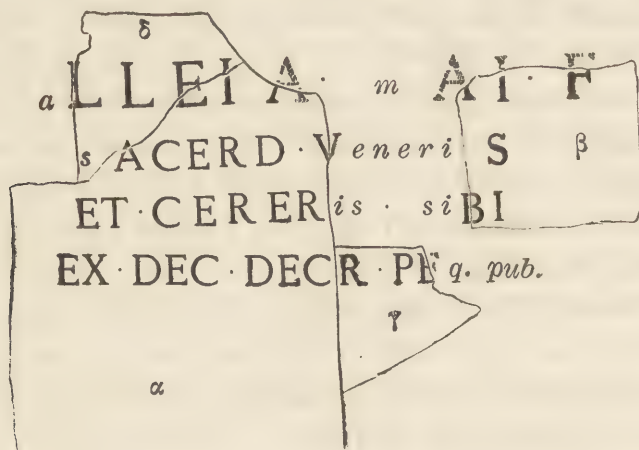 δ
aLLEIA · m AI · F
sACERD · VeneriS β
ET · CERERis · siBI
EX · DEC · DECR · PE q. pub.
γ
α